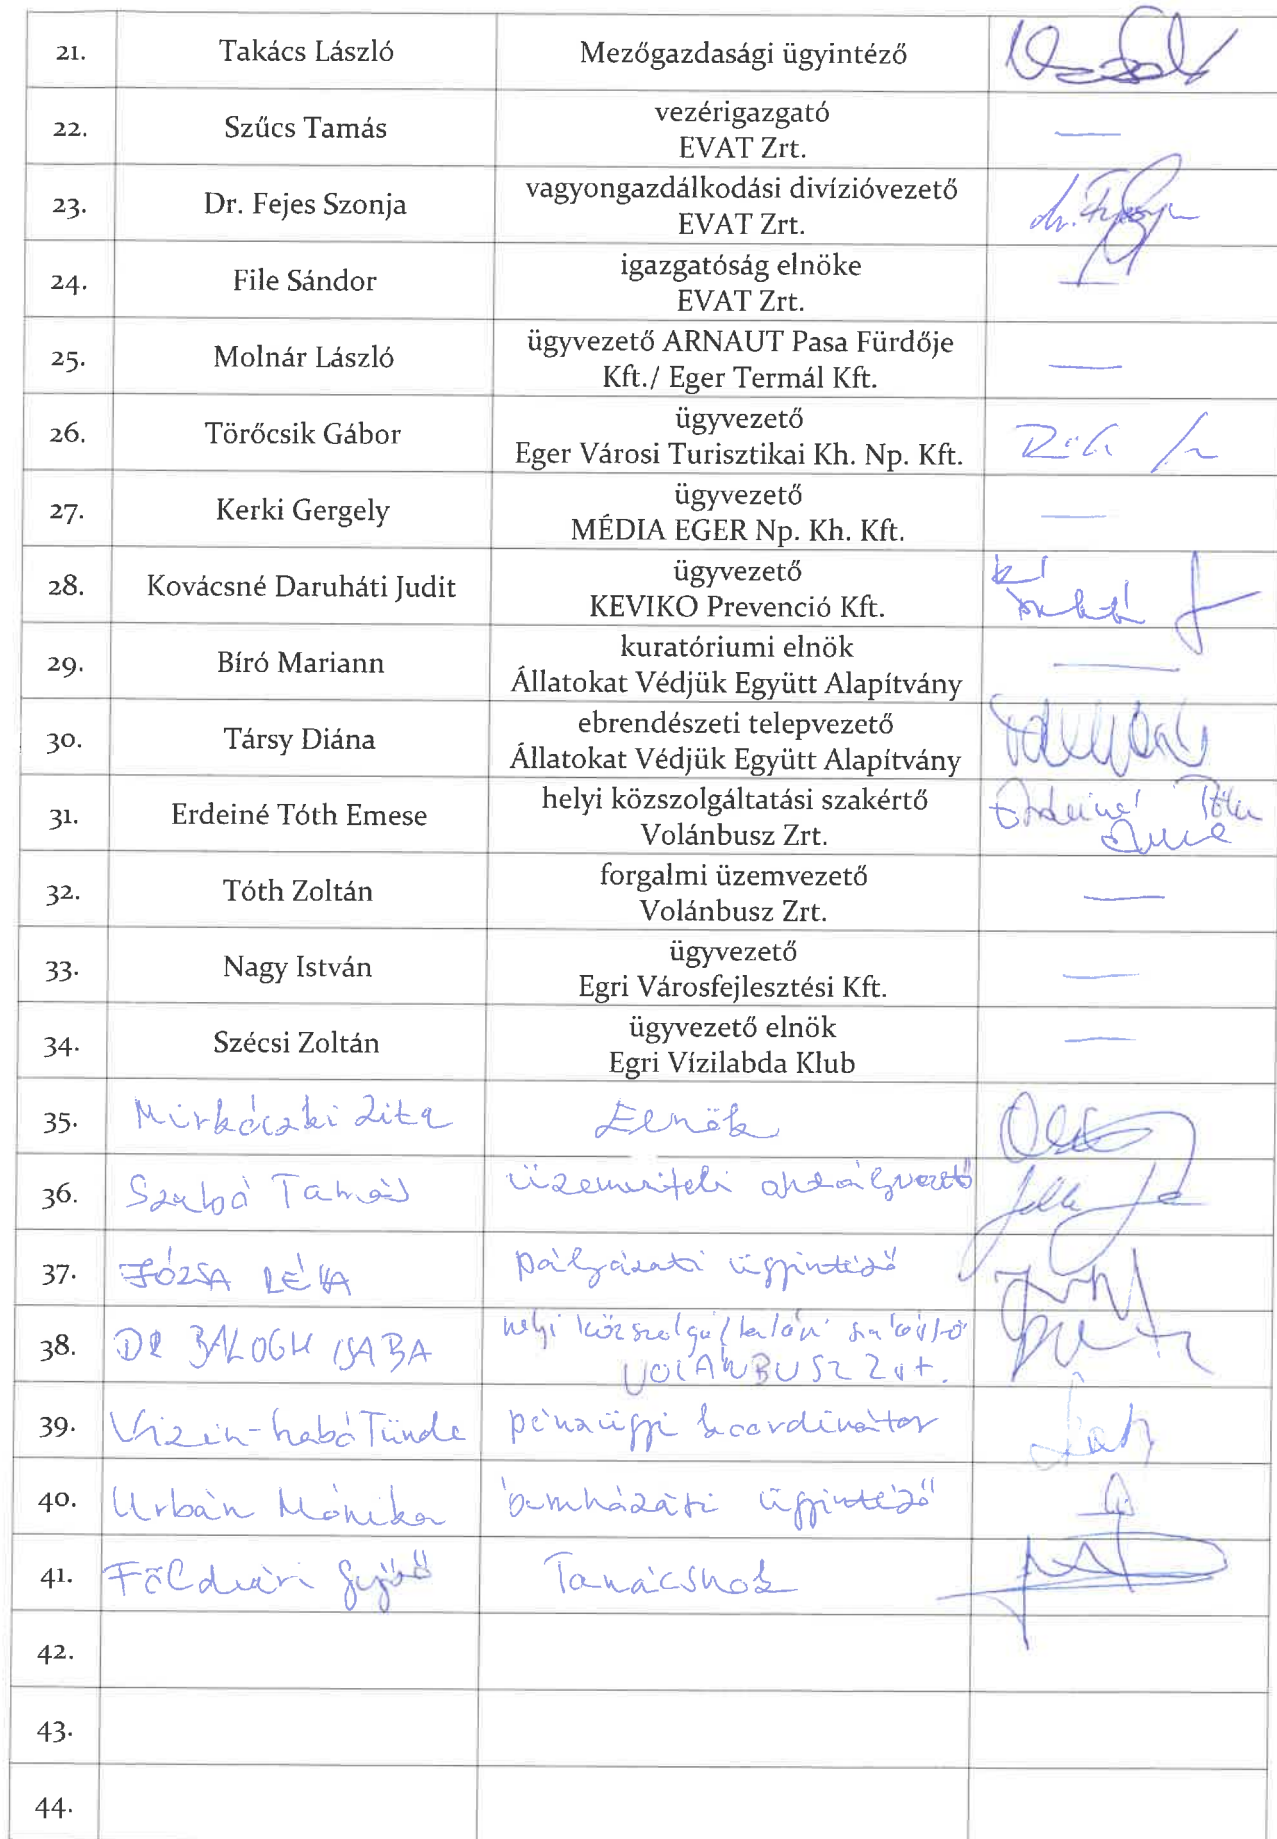 21. Takács László Mezőgazdasági ügyintéző
22. Szűcs Tamás vezérigazgató
EVAT Zrt. —
23. Dr. Fejes Szonja vagyongazdálkodási divízióvezető
EVAT Zrt. dr.
24. File Sándor igazgatóság elnöke
EVAT Zrt. —
25. Molnár László ügyvezető ARNAUT Pasa Fürdője
Kft./ Eger Termál Kft. —
26. Törőcsik Gábor ügyvezető
Eger Városi Turisztikai Kh. Np. Kft.
27. Kerki Gergely ügyvezető
MÉDIA EGER Np. Kh. Kft. —
28. Kovácsné Daruháti Judit ügyvezető
KEVIKO Prevenció Kft.
29. Bíró Mariann kuratóriumi elnök
Állatokat Védjük Együtt Alapítvány —
30. Társy Diána ebrendészeti telepvezető
Állatokat Védjük Együtt Alapítvány
31. Erdeiné Tóth Emese helyi közszolgáltatási szakértő Erdeiné Tóth
Volánbusz Zrt. Emese
32. Tóth Zoltán forgalmi üzemvezető
Volánbusz Zrt. —
33. Nagy István ügyvezető
Egri Városfejlesztési Kft. —
34. Szécsi Zoltán ügyvezető elnök
Egri Vízilabda Klub —
35. Mirkóczki Zita Elnök
36. Szabó Tamás
37. JÓZSA RÉKA pályázati ügyintéző
38. DR BALOGH CSABA helyi
VOLÁNBUSZ Zrt.
39. Tünde pénzügyi koordinátor
40. Urbán Mónika ügyintéző
41. Földvári Győző Tanácsnok
42.
43.
44.